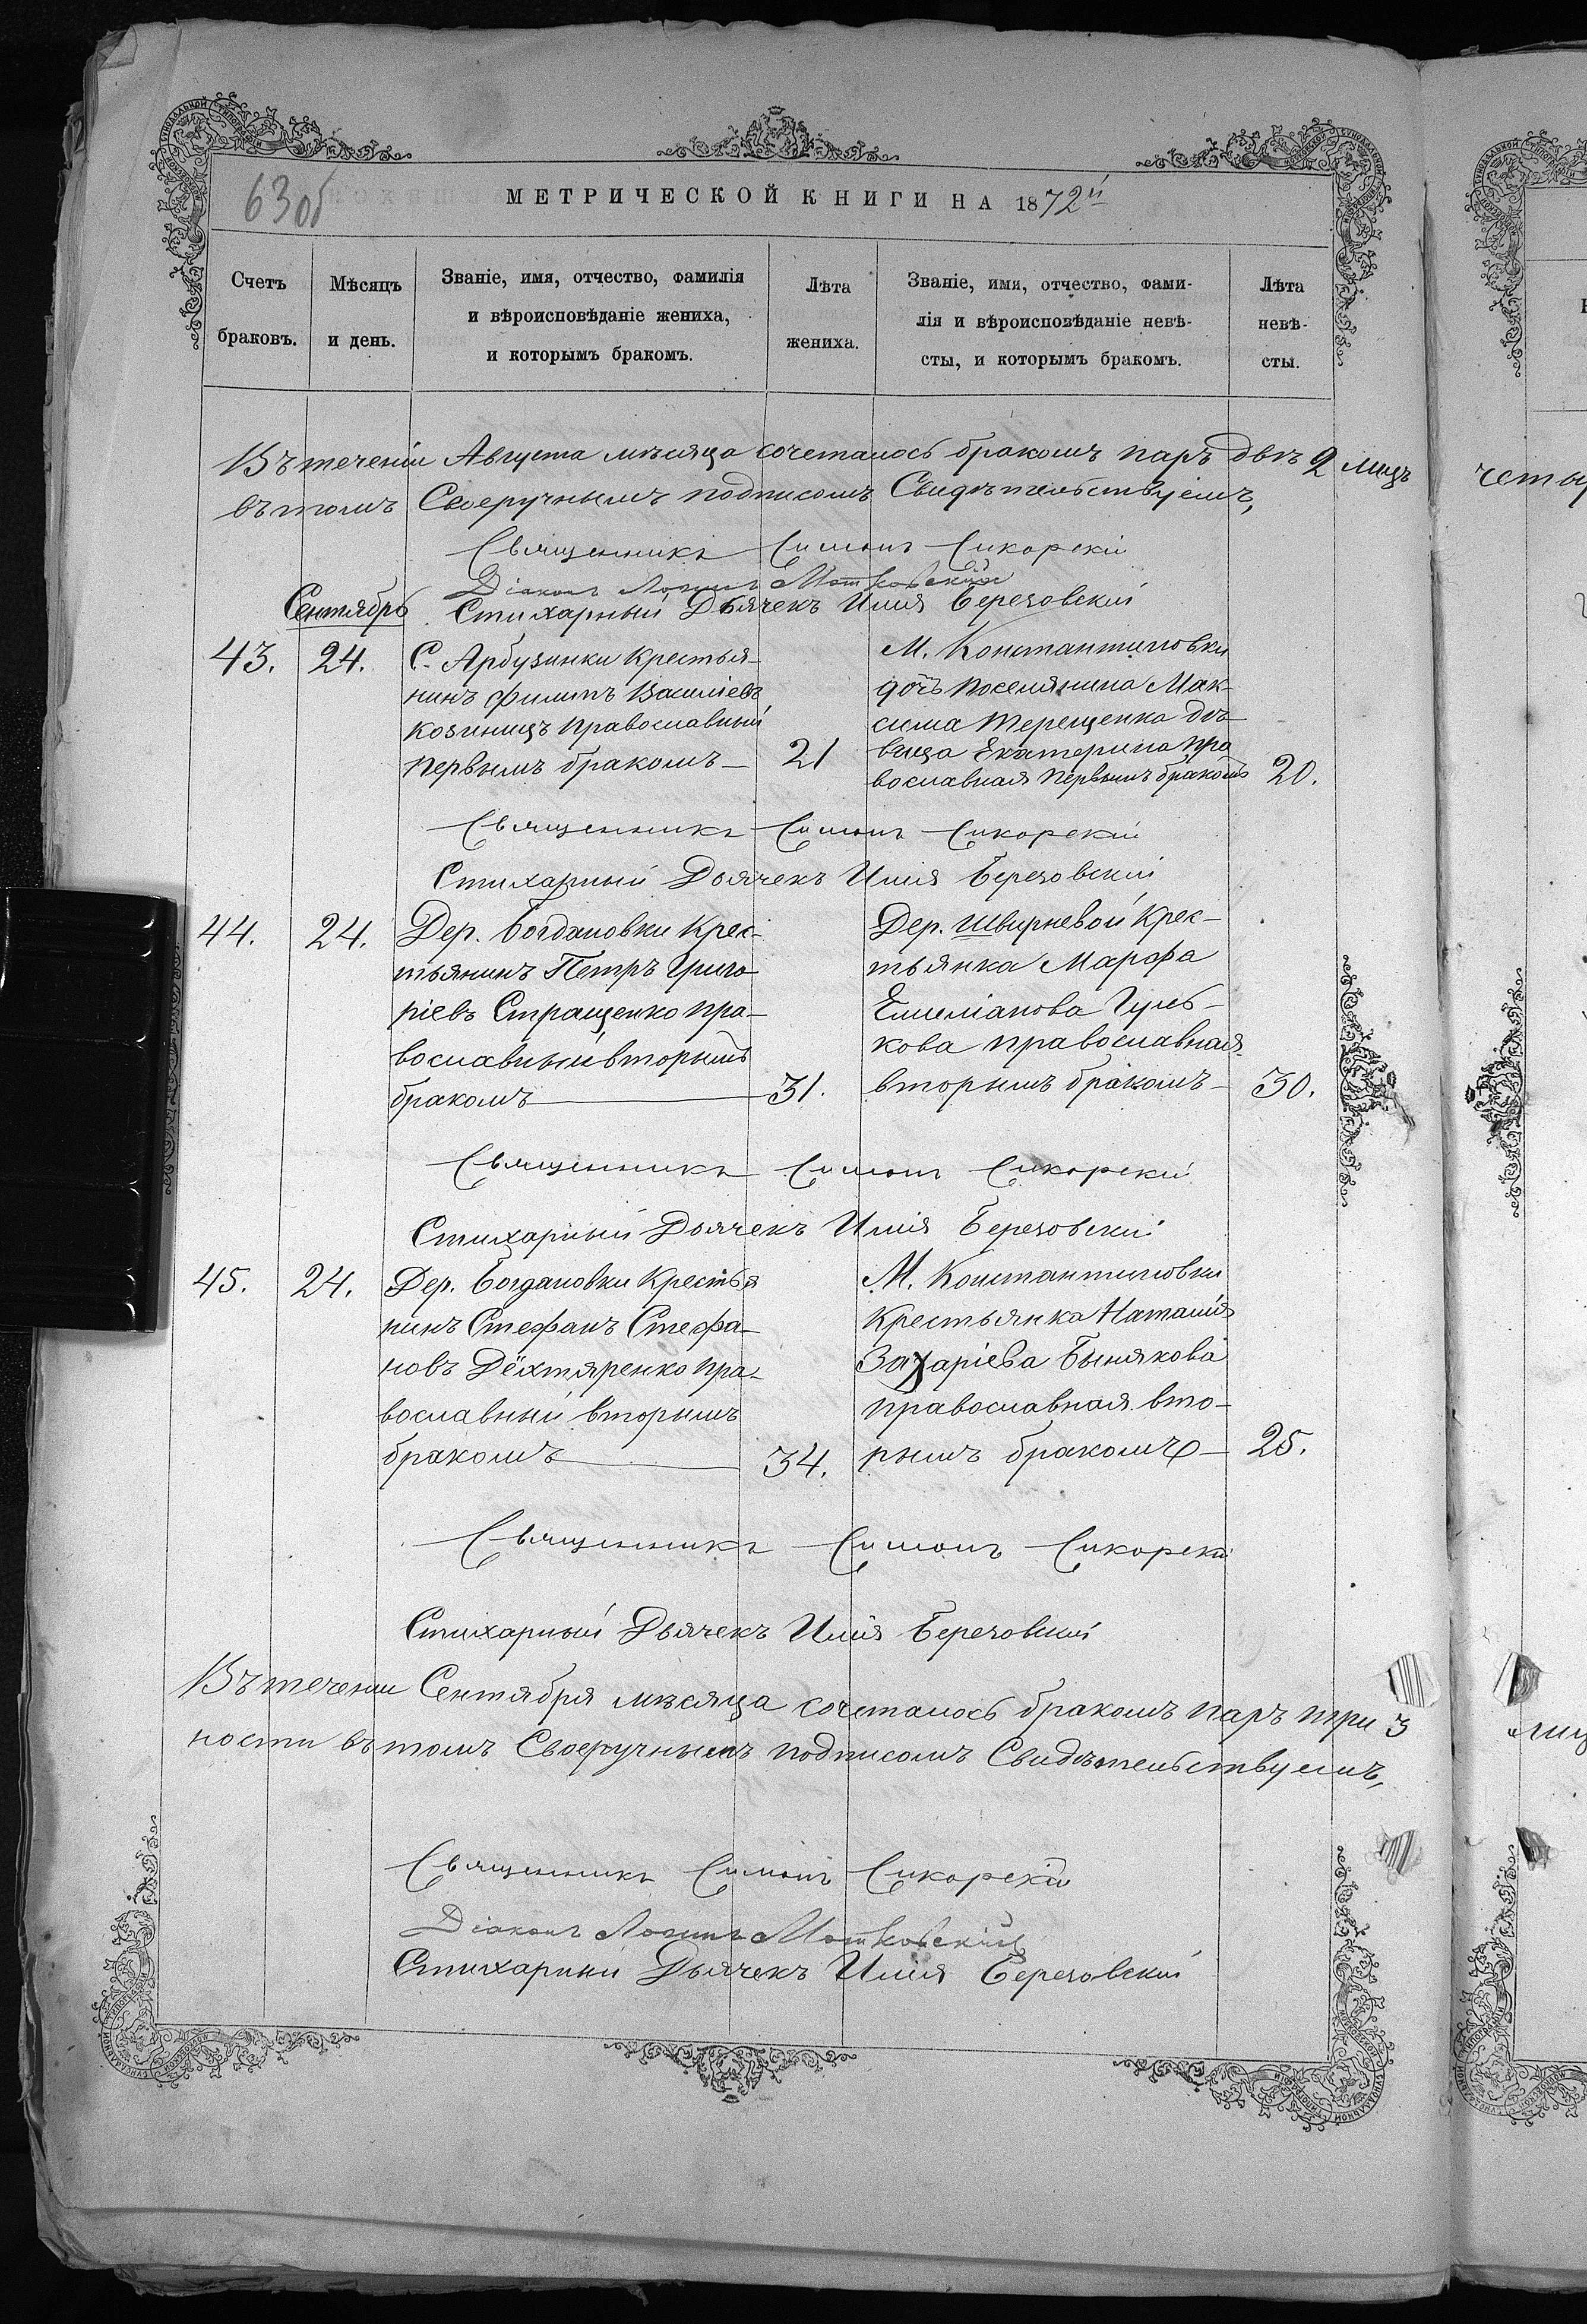 63об
МЕТРИЧЕСКОЙ КНИГИ НА 1872й
Счетъ браковъ.
Мѣсяцъ и день.
Званіе, имя, отчество, фамилія
и вѣроисповѣданіе жениха,
и которымъ бракомъ.
Лѣта жениха.
Званіе, имя, отчество, фами-
лія и вѣроисповѣданіе невѣ-
сты, и которымъ бракомъ.
Лѣта невѣ-
сты.
Въ теченіи Августа мѣсяца сочеталось бракомъ паръ двѣ 2 лицъ четы
въ томъ Своеручнымъ подписомъ Свидѣтельствуемъ,
Священникъ Симонъ Сикорскій
Діаконъ Мотковскій
Сентябрь Стихарный Дьячекъ Илія Березовскій
43. 24. С. Арбузинки Крестья-
нинъ Филипъ Василіевъ
Козиницъ православный
первымъ бракомъ— 21
М. Константиновки
дочь поселянина Мак-
сима Терещенка дѣ-
вица Екатерина пра
вославная первымъ бракомъ 20.
Священникъ Симонъ Сикорскій
Стихарный Дьячекъ Илія Березовскій
44. 24. Дер. Богдановки Крес-
тьянинъ Петръ Григо-
ріевъ Стращенко пра-
вославный вторымъ
бракомъ— 31.
Дер. Швирневой Крес-
тьянка Марфа
Емеліанова Гуль-
кова православная
вторымъ бракомъ— 30.
Священникъ Симонъ Сикорскій
Стихарный Дьячекъ Илія Березовскій
45. 24. Дер. Богдановки Крестья
нинъ Стефанъ Стефа-
новъ Дёхтяренко пра-
вославный вторымъ
бракомъ— 34.
М. Константиновки
Крестьянка Наталія
Захаріева Бынякова
православная вто-
рымъ бракомъ— 25.
Священникъ Симонъ Сикорскій
Стихарный Дьячекъ Илія Березовскій
Въ теченіи Сентября мѣсяца сочеталось бракомъ паръ три 3 лиц
ности въ томъ Своеручнымъ подписомъ Свидѣтельствуемъ,
Священникъ Симонъ Сикорскій
Діаконъ Мотковскій
Стихарный Дьячекъ Илія Березовскій